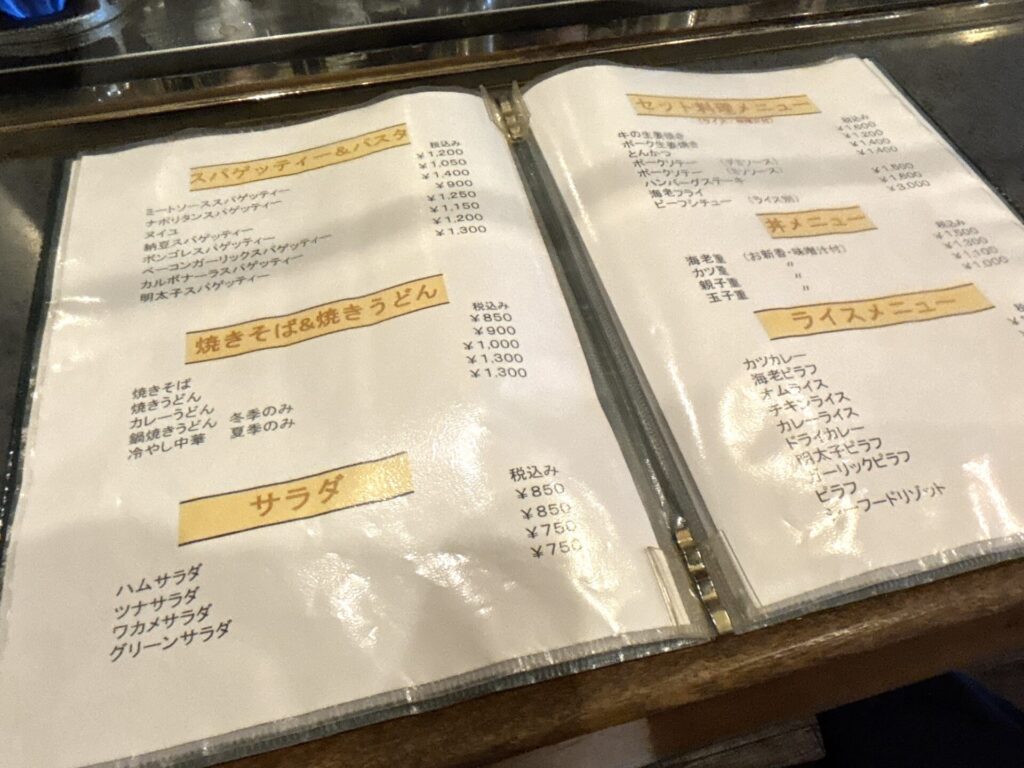 スパゲッティー&パスタ
税込み
ミートソーススパゲッティー ¥1,200
ナポリタンスパゲッティー ¥1,050
ヌイユ ¥1,400
納豆スパゲッティー ¥900
ボンゴレスパゲッティー ¥1,250
ベーコンガーリックスパゲッティー ¥1,150
カルボナーラスパゲッティー ¥1,200
明太子スパゲッティー ¥1,300
焼きそば&焼きうどん
税込み
焼きそば ¥850
焼きうどん ¥900
カレーうどん ¥1,000
鍋焼きうどん 冬季のみ ¥1,300
冷やし中華 夏季のみ ¥1,300
サラダ
税込み
ハムサラダ ¥850
ツナサラダ ¥850
ワカメサラダ ¥750
グリーンサラダ ¥750
セット料理メニュー
税込み
牛の生姜焼き ¥1,600
ポーク生姜焼き ¥1,200
とんかつ ¥1,400
ポークソテー ¥1,400
ポークソテー
ハンバーグステーキ
海老フライ
ビーフシチュー (ライス別) ¥3,000
丼メニュー
税込み
海老重 (お新香・味噌汁付) ¥1,500
カツ重 〃 ¥1,300
親子重 〃 ¥1,100
玉子重 〃 ¥1,000
ライスメニュー
カツカレー
海老ピラフ
オムライス
チキンライス
カレーライス
ドライカレー
明太子ピラフ
ガーリックピラフ
ピラフ
フードリゾット